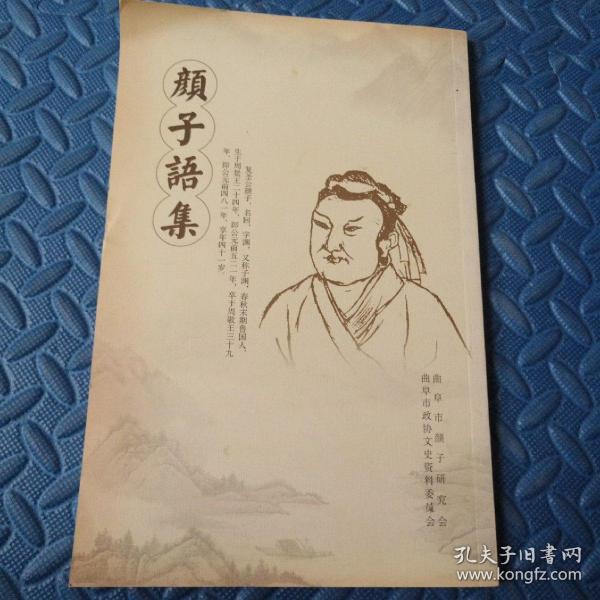 顔子語集
复圣公颜子，名回，字渊，又称子渊，春秋末期鲁国人，
生于周景王二十四年，即公元前五二一年，卒于周敬王三十九
年，即公元前四八一年，享年四十一岁。
曲阜市颜子研究会
曲阜市政协文史资料委员会
孔夫子旧书网
www.kongfz.com